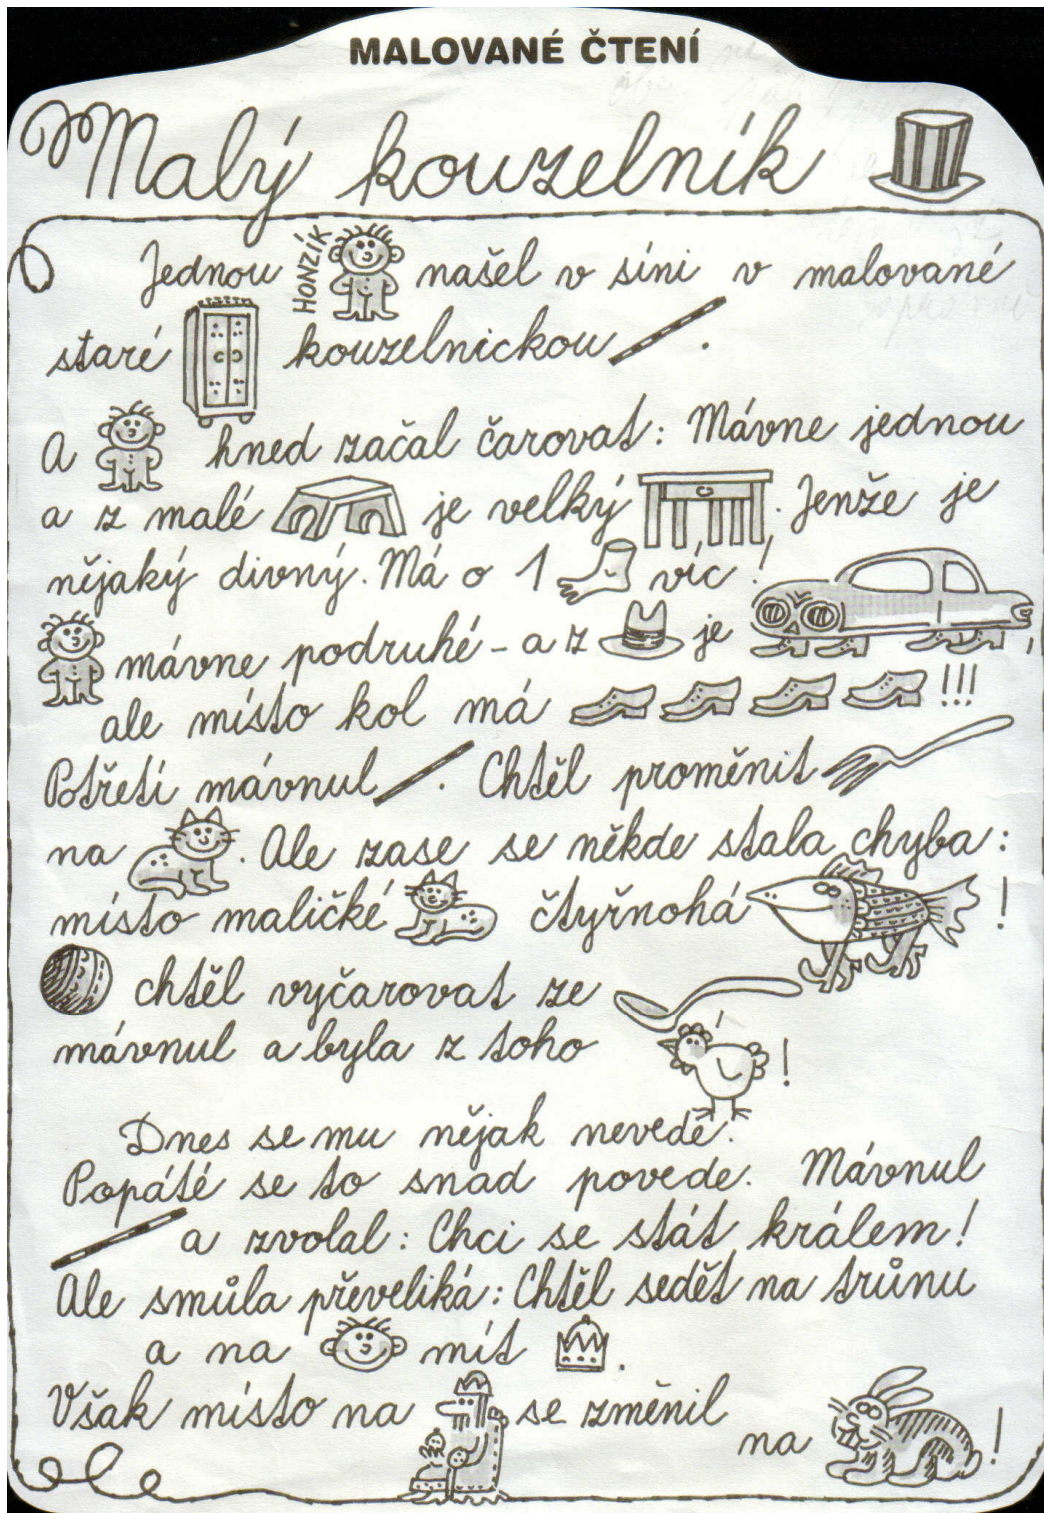 MALOVANÉ ČTENÍ
Malý kouzelník
Jednou HONZÍK našel v síni v malované
staré kouzelnickou .
A hned začal čarovat: Mávne jednou
a z malé je velký . Jenže je
nějaký divný. Má o 1 víc!
mávne podruhé - a z je ,
ale místo kol má !!!
Potřetí mávnul . Chtěl proměnit
na . Ale zase se někde stala chyba:
místo maličké čtyřnohá !
chtěl vyčarovat ze
mávnul a byla z toho !
Dnes se mu nějak nevede.
Popáté se to snad povede. Mávnul
a zvolal: Chci se stát králem!
Ale smůla převeliká: Chtěl sedět na trůnu
a na mít .
Však místo na se změnil
na !